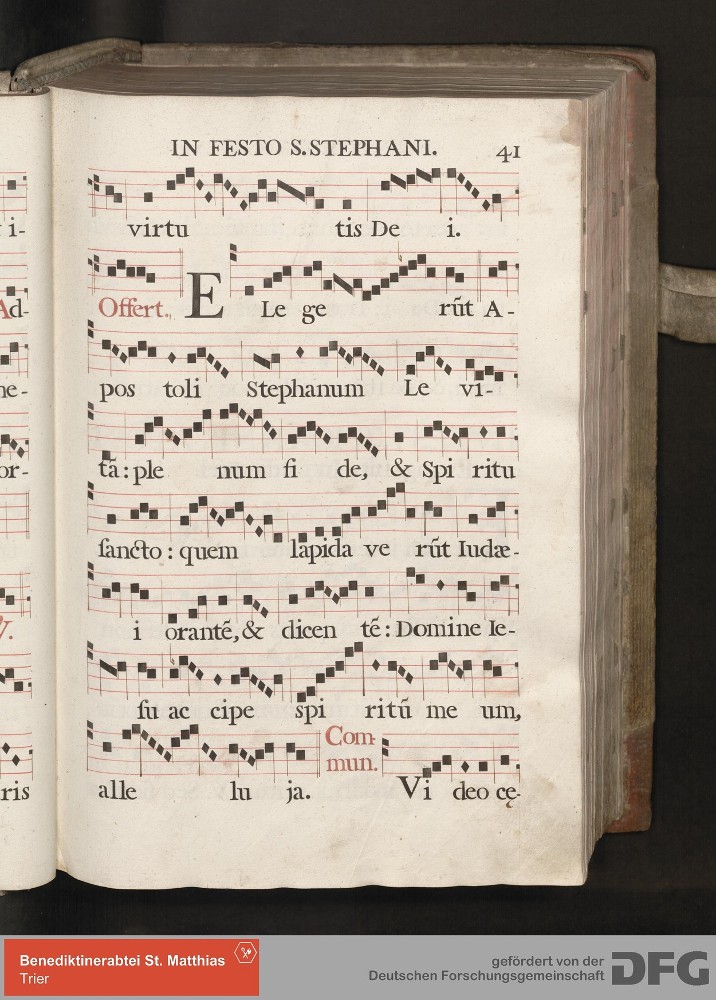 i-
Ad-
ne-
or-
V.
ris
IN FESTO S. STEPHANI. 41
virtu tis De i.
Offert. E Le ge rũt A-
pos toli Stephanum Le vi-
tã: ple num fi de, & Spi ritu
sancto: quem lapida ve rũt Iudæ-
i orantẽ, & dicen tẽ: Domine Ie-
su ac cipe spi ritũ me um,
alle lu ja. Com-
mun. Vi deo cę-
Benediktinerabtei St. Matthias
Trier
gefördert von der
Deutschen Forschungsgemeinschaft DFG